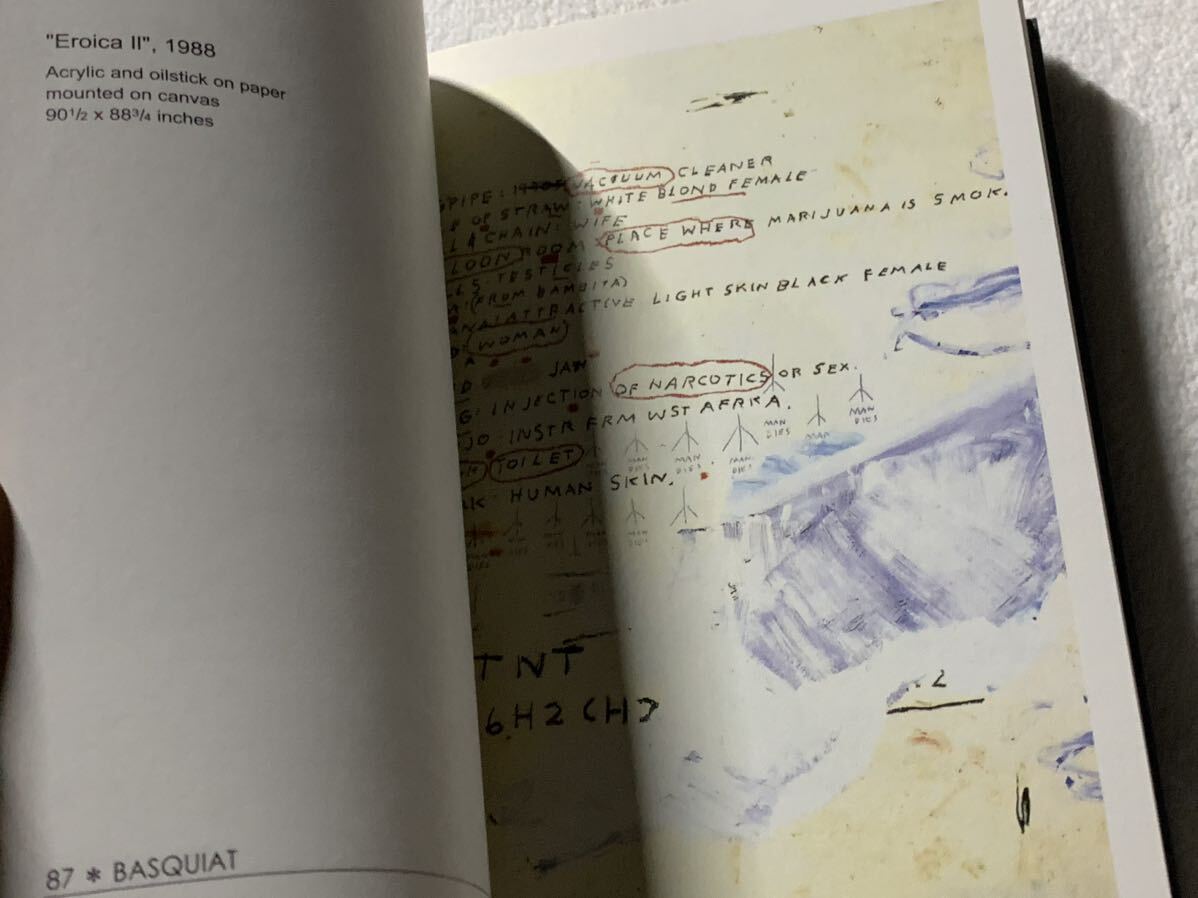 "Eroica II", 1988
Acrylic and oilstick on paper
mounted on canvas
90½ x 88¾ inches
87 * BASQUIAT
PIPE: VACUUM CLEANER
OF STRAW: WHITE BLOND FEMALE
& CHAIN: WIFE
LOON ROOM: PLACE WHERE MARIJUANA IS SMOK.
LLS: TESTICLES
(FROM BAMBITA)
ATTRACTIVE LIGHT SKIN BLACK FEMALE
WOMAN
JAN
G: INJECTION OF NARCOTICS OR SEX.
JO: INSTR FRM WST AFRKA.
TOILET
MAN DIES MAN DIES MAN DIES MAN DIES MAN MAN DIES
HUMAN SKIN.
TNT
6 H2 (H)
2